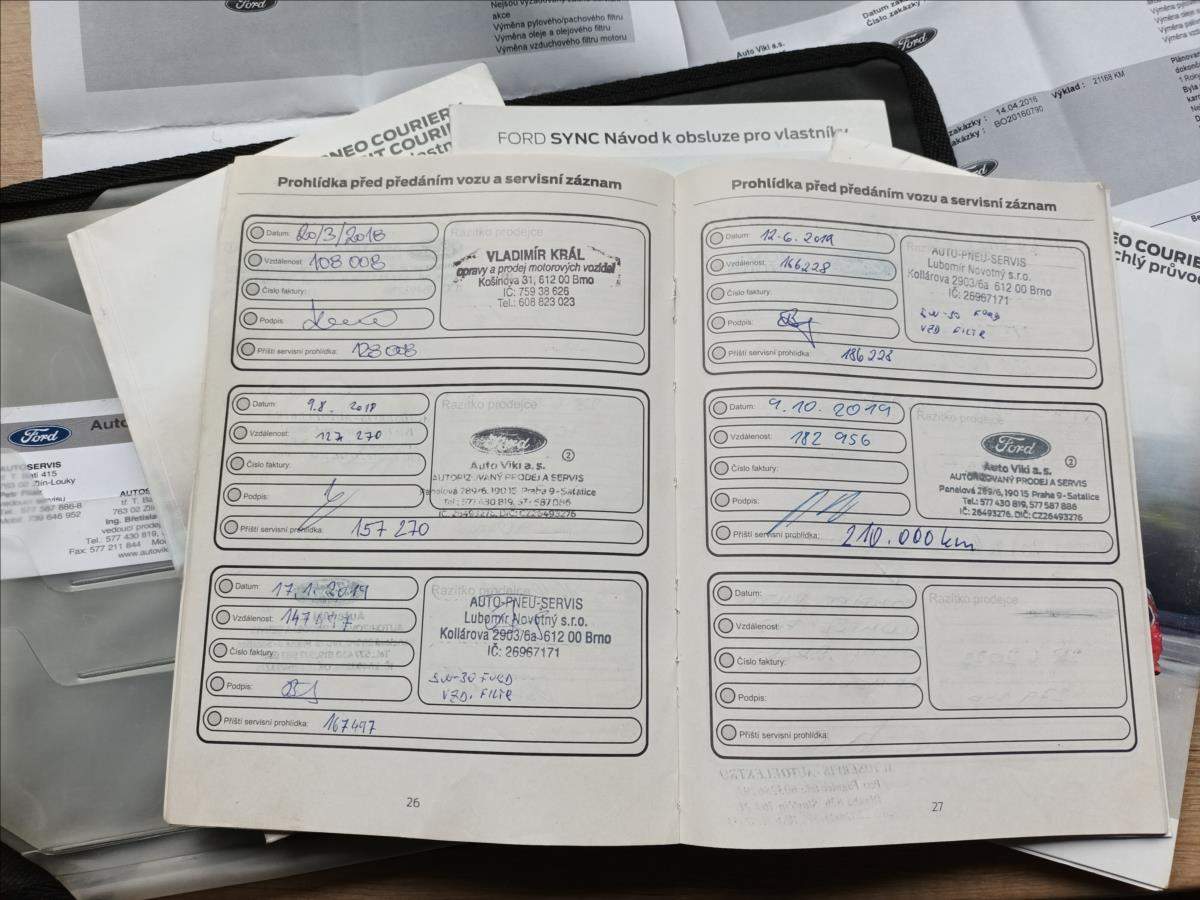 Ford
Nejsou vyžadovány
akce
Výměna pylového/pachového filtru
Výměna oleje a olejového filtru
Výměna vzduchového filtru motoru
Datum
Číslo zakázky
Výměna
Auto Viki a.s.
Ford
14.04.2016
BO20160790
Výklad : 21168 KM
NEO COURIER
IT COURI
FORD SYNC Návod k obsluze pro vlastníky
Ford
AUTOSERVIS
tř. T. Bati 415
763 02 Zlín-Louky
Prohlídka před předáním vozu a servisní záznam
Datum: 20/3/2018
Vzdálenost: 108 008
Číslo faktury:
Podpis:
Příští servisní prohlídka: 128 008
Razítko prodejce
VLADIMÍR KRÁL
opravy a prodej motorových vozidel
Košinova 31, 612 00 Brno
IČ: 759 38 626
Tel.: 608 823 023
Datum: 9.8. 2018
Vzdálenost: 127 270
Číslo faktury:
Podpis:
Příští servisní prohlídka: 157 270
Razítko prodejce
Ford
2
Auto Viki a.s.
AUTORIZOVANÝ PRODEJ A SERVIS
Panelová 289/6, 190 15 Praha 9-Satalice
Tel.: 577 430 819, 577 587 086
IČ: 26493276, DIČ: CZ26493276
Datum: 17.1. 2019
Vzdálenost: 147497
Číslo faktury:
Podpis:
Příští servisní prohlídka: 167497
Razítko prodejce
AUTO-PNEU-SERVIS
Lubomír Novotný s.r.o.
Kollárova 2903/6a 612 00 Brno
IČ: 26967171
5W-30 FORD
VZD. FILTR
26
Prohlídka před předáním vozu a servisní záznam
Datum: 12.6.2019
Vzdálenost: 166228
Číslo faktury:
Podpis:
Příští servisní prohlídka: 186228
AUTO-PNEU-SERVIS
Lubomír Novotný s.r.o.
Kollárova 2903/6a 612 00 Brno
IČ: 26967171
5W-30 FORD
VZD. FILTR
Datum: 9.10.2019
Vzdálenost: 182 956
Číslo faktury:
Podpis:
Příští servisní prohlídka: 210.000 km
Razítko prodejce
Ford
2
Auto Viki a.s.
AUTORIZOVANÝ PRODEJ A SERVIS
Panelová 289/6, 190 15 Praha 9-Satalice
Tel.: 577 430 819, 577 587 086
IČ: 26493276, DIČ: CZ26493276
Datum:
Vzdálenost:
Číslo faktury:
Podpis:
Příští servisní prohlídka:
Razítko prodejce
27
EO COURIER
chlý průvo